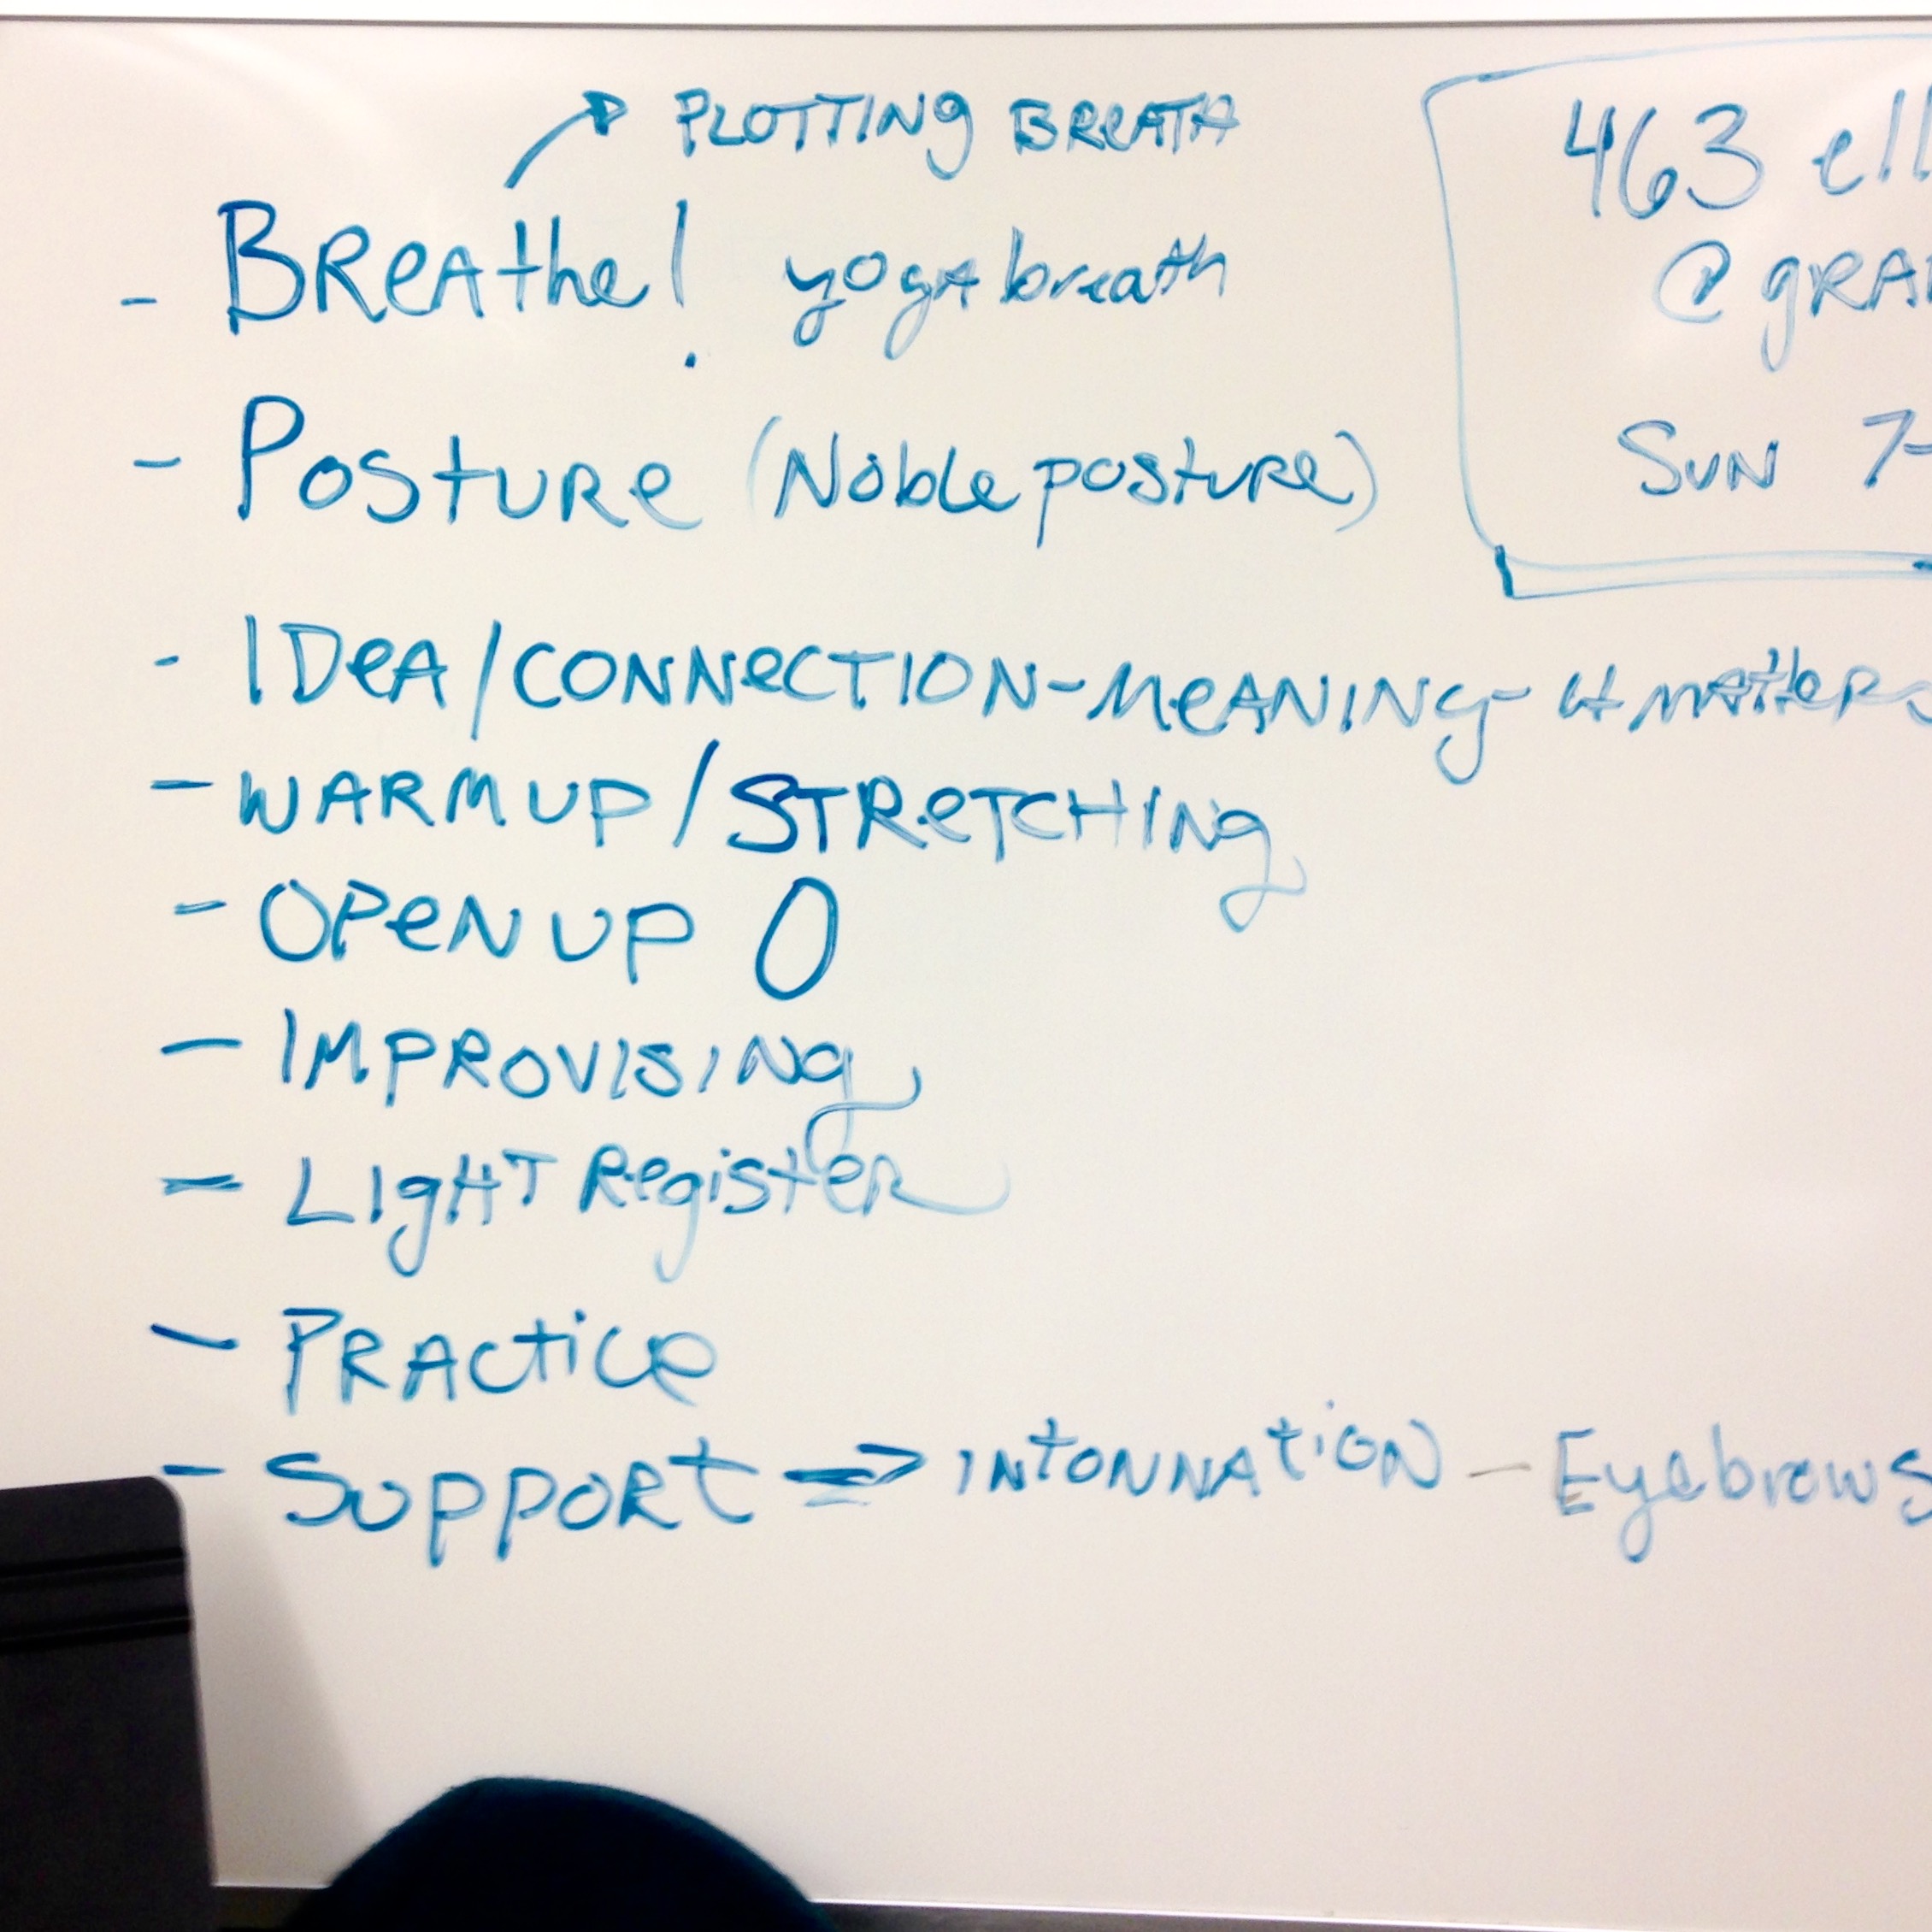 PLOTTING BREATH
- BReAthe! yogA breath
- PostURe (Noble posture)
- IDeA/CONNeCTION-MeANINg- it mAtteRs
- WARM UP/STReTCHINg
- OPeN UP O
- IMPROVISINg
- LIgHT RegisteR
- PRActice
- SuppoRt => INtONNAtiON - Eyebrows
463 ell
@ gRA
SuN 7-